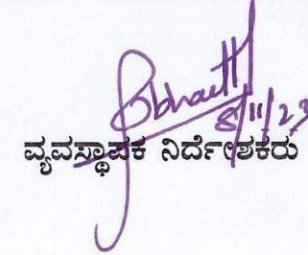 8/11/23
ವ್ಯವಸ್ಥಾಪಕ ನಿರ್ದೇಶಕರು